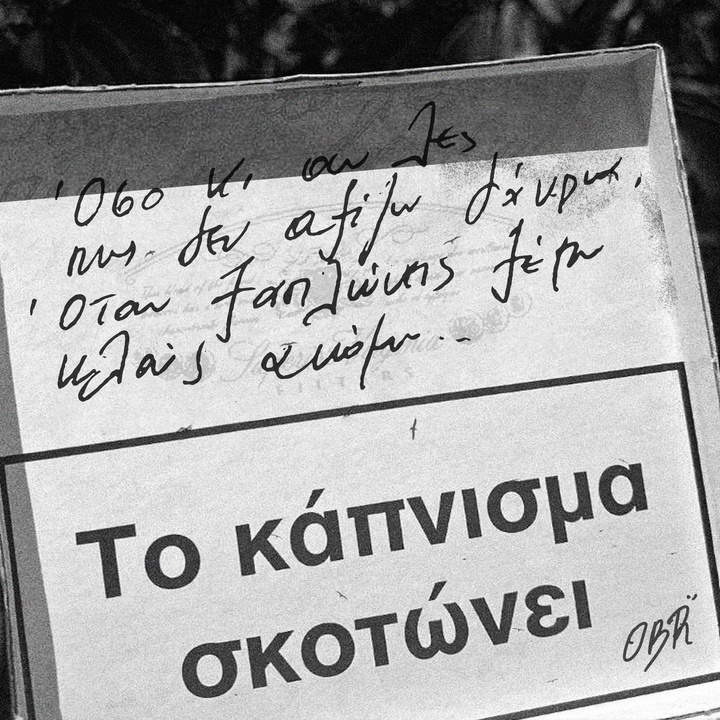 Όσο κι αν λες
πως δεν αξίζω δάκρυα,
Όταν ξαπλώνεις ξέρω
κλαις ακόμα...
FILTERS
Το κάπνισμα
σκοτώνει
OBR